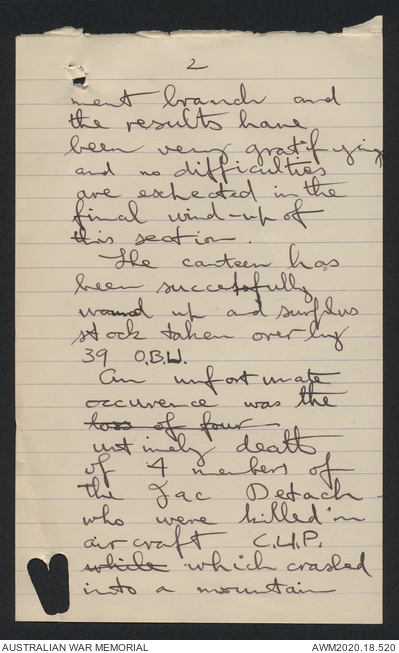 2
ment branch and
the results have
been very gratifying
and no difficulties
are expected in the
final wind-up of
this section.
The canteen has
been succesfully
wound up and surplus
stock taken over by
39 O.B.U.
An unfortunate
occurence was the
loss of four
untimely death
of 4 members of
the Jac Detach -
who were killed in
aircraft C.U.P.
while which crashed
into a mountain
AUSTRALIAN WAR MEMORIAL
AWM2020.18.520